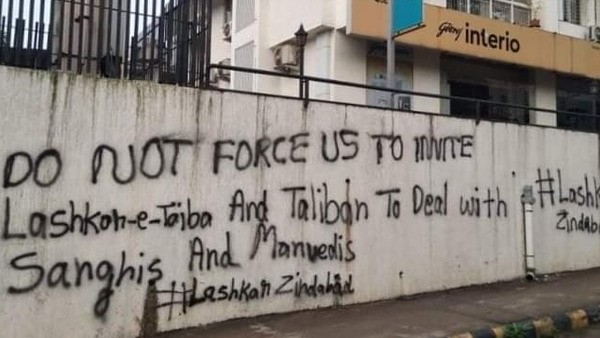 Godrej interio
DO NOT FORCE US TO INVITE
Lashkar-e-Taiba And Taliban To Deal with
Sanghis And Manvedis
#Lashkar Zindabad
#Lashk
Zindaba